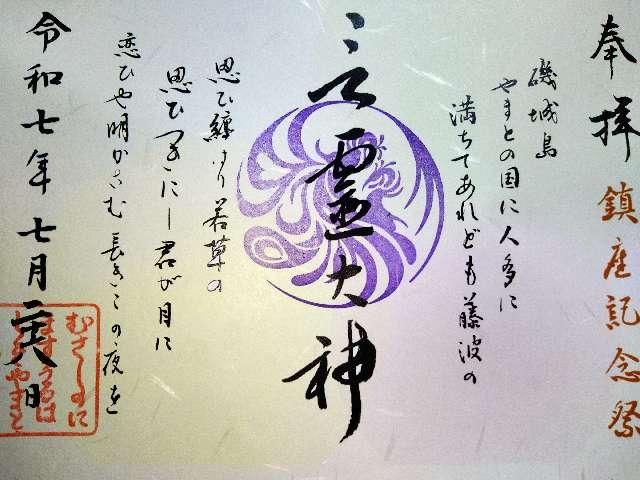 奉拝
鎮座記念祭
磯城島
やまとの国に人多に
満ちてあれども藤波の
言霊大神
思ひ纏はり若草の
思ひつきにし君が目に
恋ひや明かさむ長きこの夜を
令和七年七月 日
むさしのに